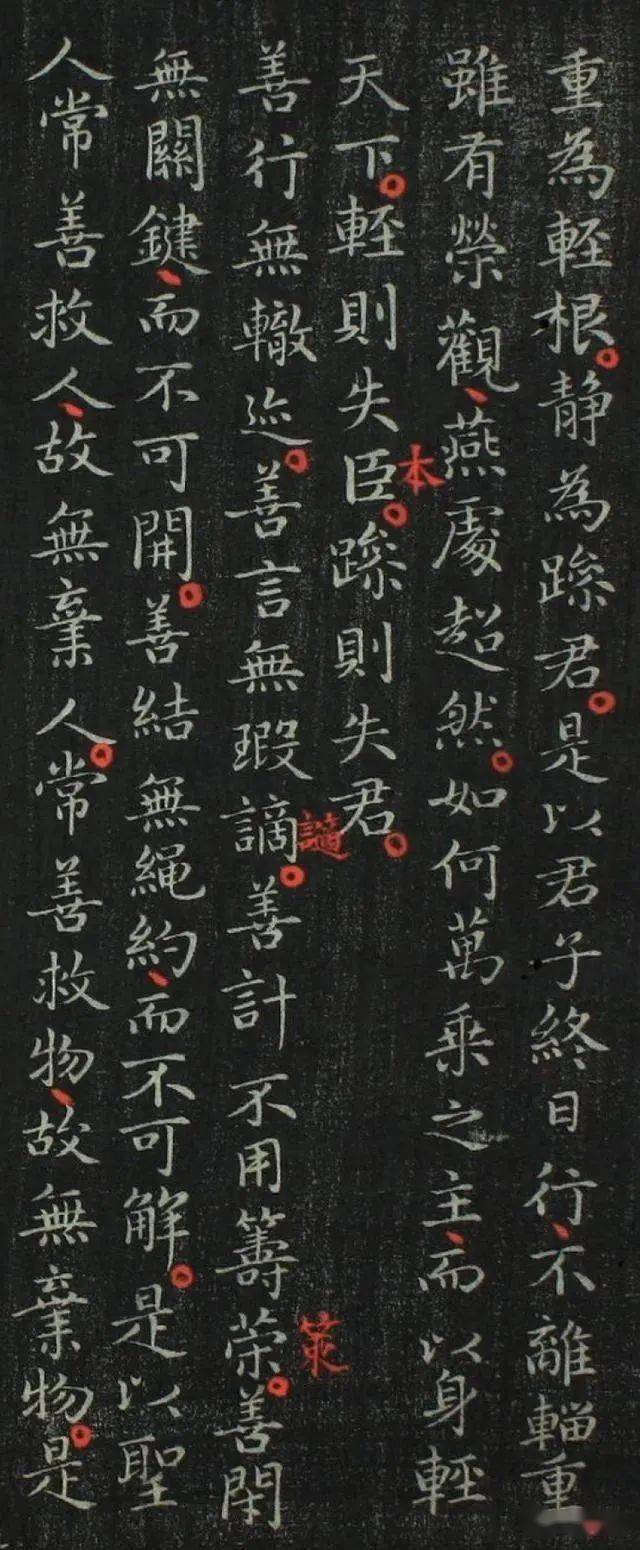 重為輕根。静為躁君。是以君子終日行、不離輜重
雖有榮觀、燕處超然。如何萬乘之主、而以身輕
本
天下。輕則失臣。躁則失君。
讁
策
善行無轍迹。善言無瑕謫。善計不用籌策。善閇
無關鍵、而不可開。善結無繩約、而不可解。是以聖
人常善救人、故無棄人。常善救物、故無棄物。是